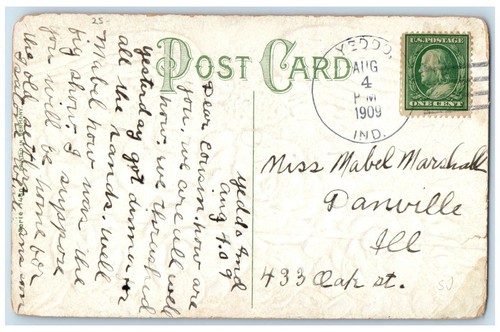 25-
POST CARD
YEDDO,
AUG
4
PM
1909
IND.
U.S. POSTAGE
ONE CENT
Yeddo Ind
Aug 4. 09
Dear Cousin, how are
you, we are all well
how, we thrashed
yesterday got dinner for
all the hands. well
Mabel how was the
big show. I suppose
you will be home
the old settlers
Miss Mabel Marshall
Danville
Ill
433 Oak st.